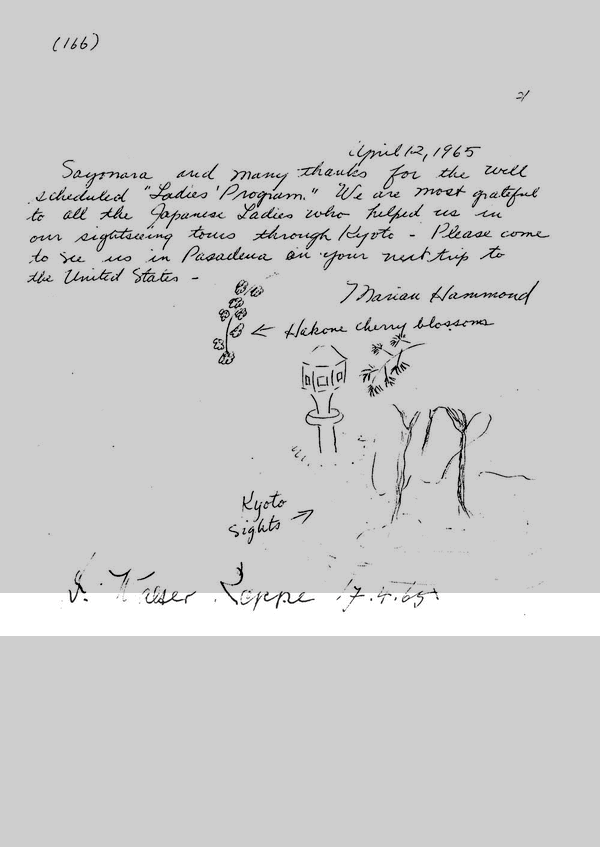 (166)
21
April 12, 1965
Sayonara and many thanks for the well
scheduled "Ladies' Program." We are most grateful
to all the Japanese Ladies who helped us in
our sightseeing tours through Kyoto - Please come
to see us in Pasadena on your next trip to
the United States -
Marian Hammond
← Hakone cherry blossoms
Kyoto
Sights →
Reppe 17.4.65